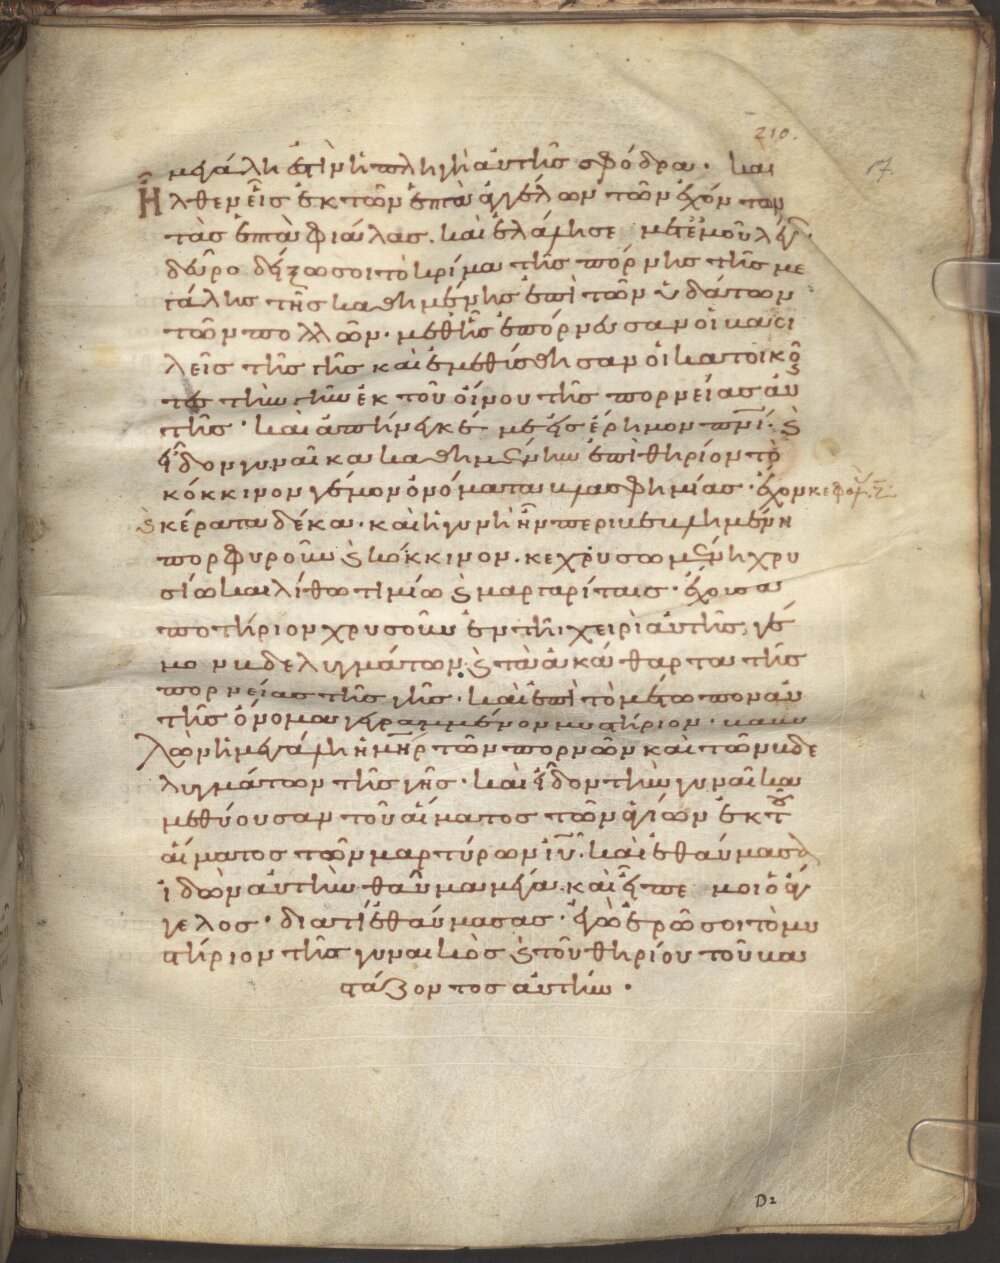 210.
μεγάλη ἐστὶν ἡ πληγὴ αὐτῆς σφόδρα· και
17.
Ἦλθεν εἷς ἐκ τῶν ἑπτὰ ἀγγέλων τῶν ἐχόντων
τὰς ἑπτὰ φιάλας. καὶ ἐλάλησε μετ ἐμοῦ λέγ·
δεῦρο δείξω σοι τὸ κρίμα τῆς πόρνης τῆς με
γάλης τῆς καθημένης ἐπὶ τῶν ὑδάτων
τῶν πολλῶν· μεθ ἧς ἐπόρνευσαν οἱ βασι
λεῖς τῆς γῆς καὶ ἐμεθύσθησαν οἱ κατοικοῦ
τες τὴν γῆν ἐκ τοῦ οἴνου τῆς πορνείας αὐ
τῆς· καὶ ἀπήνεγκέ με εἰς ἔρημον πνι· ϗ
εἶδον γυναῖκα καθημένην ἐπὶ θηρίον τὸ
κόκκινον γέμον ὀνόματα βλασφημίας· ἔχον κεφαλ ζ
ϗ κέρατα δέκα· καὶ ἡ γυνὴ ἦν περιβεβλημένη
πορφυροῦν ϗ κόκκινον. κεχρυσωμένη χρυ
σίω και λίθω τιμίω ϗ μαργαρίταις· ἔχουσα
ποτήριον χρυσοῦν ἐν τῆ χειρὶ αὐτῆς, γέ
μον βδελυγμάτων, ϗ τὰ ἀκάθαρτα τῆς
πορνείας τῆς γῆς· καὶ ἐπὶ τὸ μέτωπον αὐ
τῆς ὄνομα γεγραμμένον μυστήριον· βαβυ
λὼν ἡ μεγάλη ἡ μηρ τῶν πορνῶν καὶ τῶν βδε
λυγμάτων τῆς γῆς· καὶ εἶδον τὴν γυναῖκα
μεθύουσαν τοῦ αἵματος τῶν ἁγίων ἐκ τοῦ
αἵματος τῶν μαρτύρων ιυ· καὶ ἐθαύμασα
ἰδὼν αὐτὴν θαῦμα μέγα. καὶ εἶπε μοι ὁ ἄγ
γελος· διατί ἐθαύμασας· ἐγὼ ἐρῶ σοι τὸ μυ
στήριον τῆς γυναικὸς ϗ τοῦ θηρίου τοῦ βα
στάζοντος αὐτήν·
D2